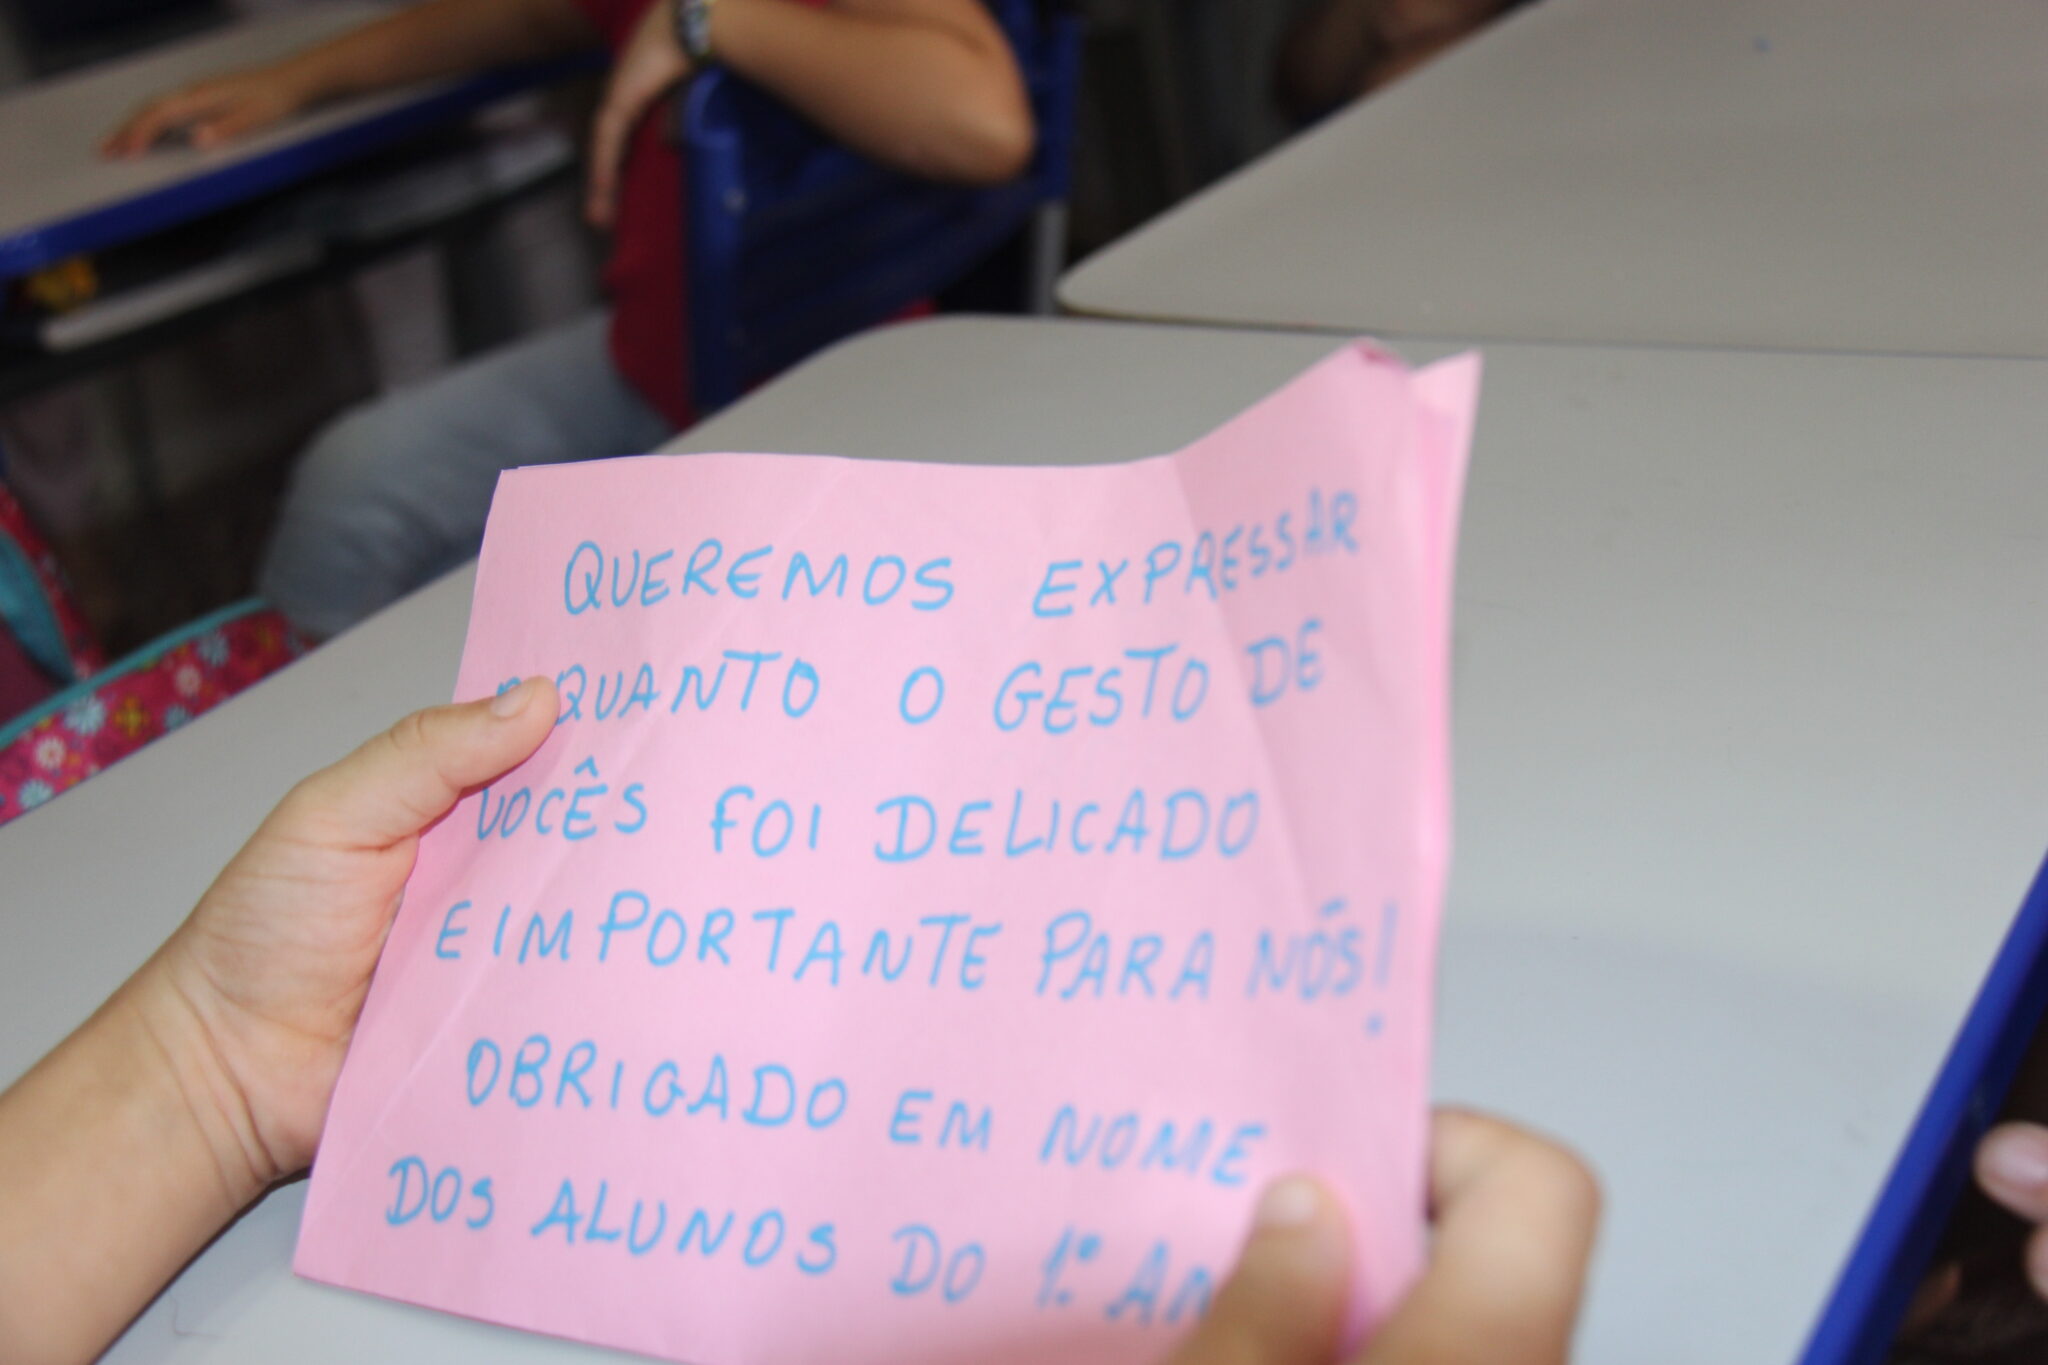 QUEREMOS EXPRESSAR
O QUANTO O GESTO DE
VOCÊS FOI DELICADO
E IMPORTANTE PARA NÓS!
OBRIGADO EM NOME
DOS ALUNOS DO 1º